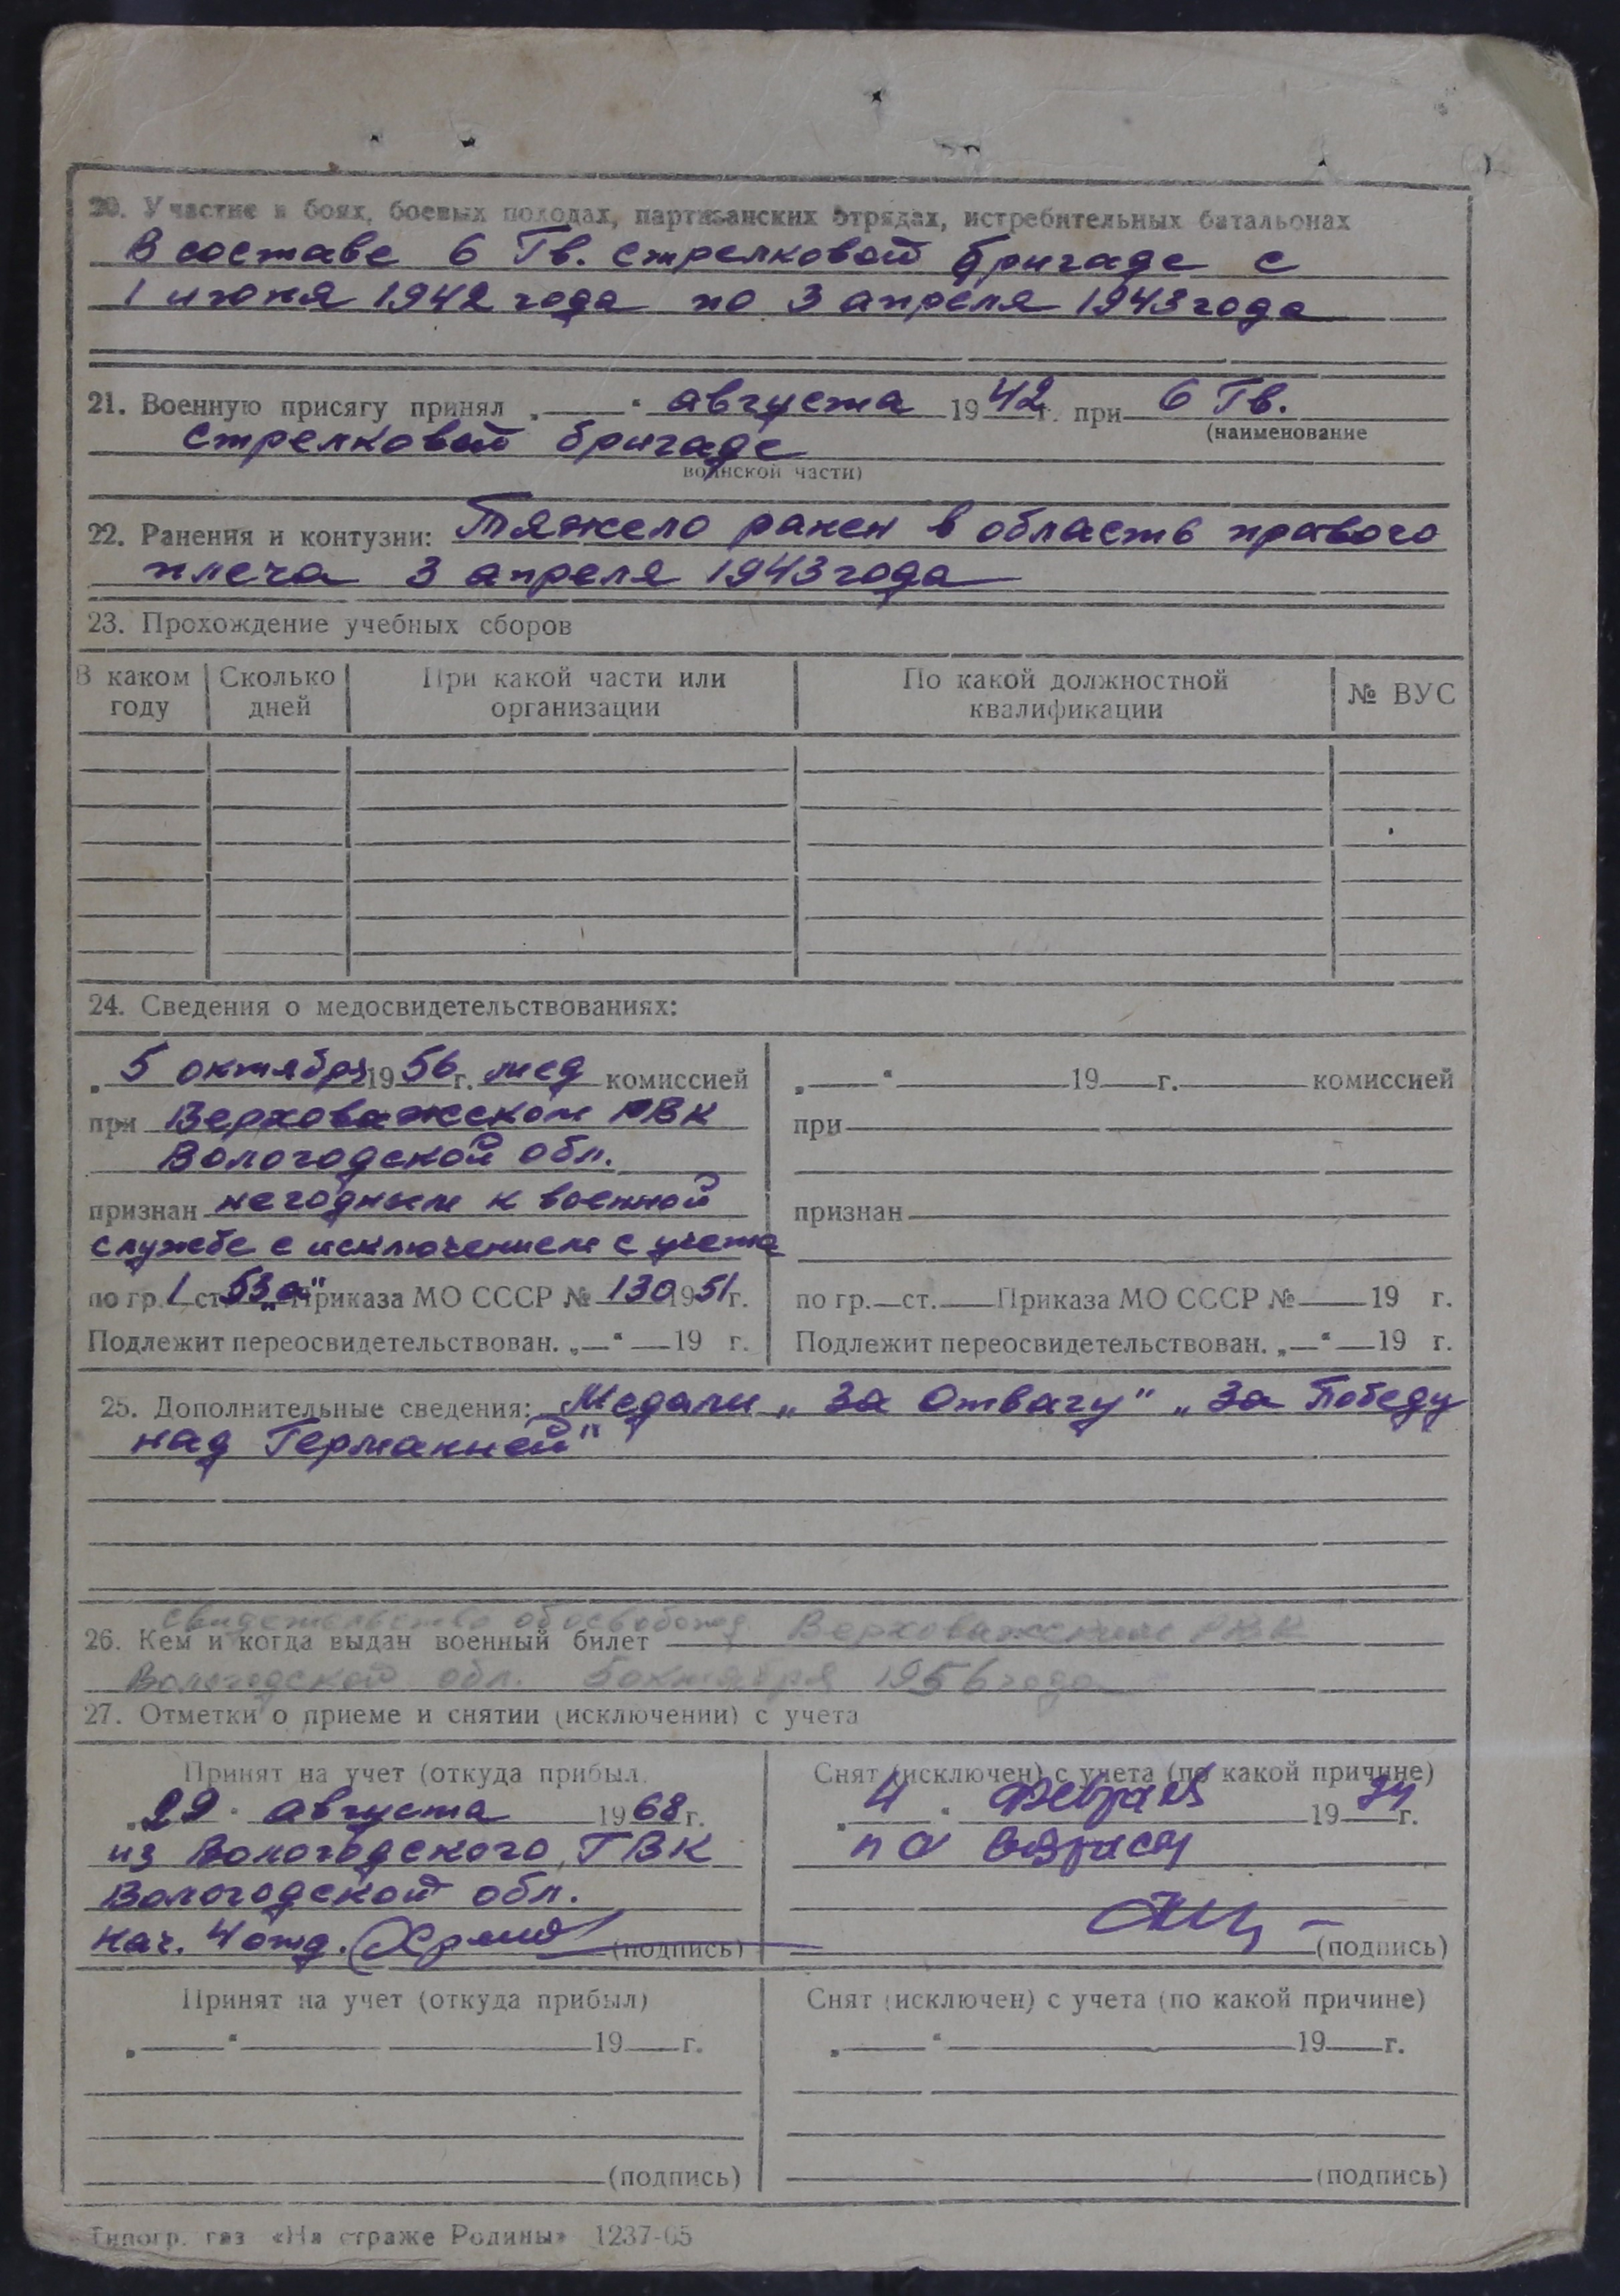 20. Участие в боях, боевых походах, партизанских отрядах, истребительных батальонах
В составе 6 Гв. стрелковой бригаде с
1 июня 1942 года по 3 апреля 1943 года
21. Военную присягу принял „ “ августа 1942 г. при 6 Гв.
(наименование
стрелковой бригаде
воинской части)
22. Ранения и контузии: Тяжело ранен в область правого
плеча 3 апреля 1943 года
23. Прохождение учебных сборов
В каком году Сколько дней При какой части или организации По какой должностной квалификации № ВУС
24. Сведения о медосвидетельствованиях:
„5 октября 1956 г. мед комиссией
при Верховажском РВК
Вологодской обл.
признан негодным к военной
службе с исключением с учета
по гр. 1 ст. 53 „а“ Приказа МО СССР № 130 1951 г.
Подлежит переосвидетельствован. „ “ 19 г.
„ “ 19 г. комиссией
при
признан
по гр. ст. Приказа МО СССР № 19 г.
Подлежит переосвидетельствован. „ “ 19 г.
25. Дополнительные сведения: Медали „За Отвагу“ „За Победу
над Германией“
свидетельство об освобожд.
26. Кем и когда выдан военный билет Верховажским РВК
Вологодской обл. 5 октября 1956 года
27. Отметки о приеме и снятии (исключении) с учета
Принят на учет (откуда прибыл)
„29“ августа 1968 г.
из Вологодского ГВК
Вологодской обл.
нач. 4 отд. (подпись)
Снят (исключен) с учета (по какой причине)
„4“ февраля 1974 г.
по возрасту
(подпись)
Принят на учет (откуда прибыл)
„ “ 19 г.
(подпись)
Снят (исключен) с учета (по какой причине)
„ “ 19 г.
(подпись)
Типогр. газ «На страже Родины» 1237-65